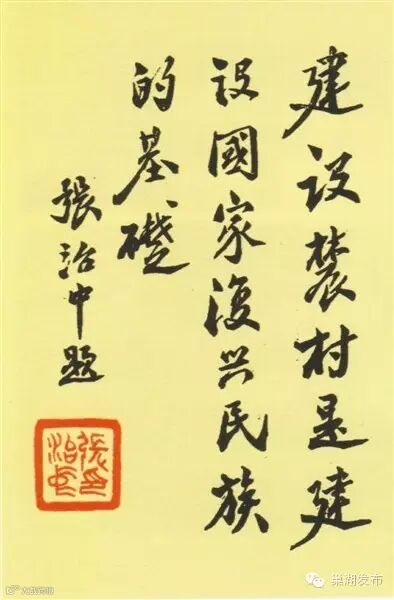 建设農村是建
设國家復兴民族
的基礎
張治中题
張治中印
巢湖发布